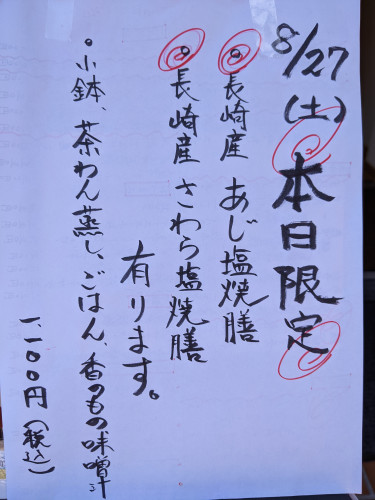 8/27(土)本日限定
・長崎産 あじ塩焼膳
・長崎産 さわら塩焼膳
有ります。
・小鉢、茶わん蒸し、ごはん、香のもの 味噌汁
一、一〇〇円(税込)